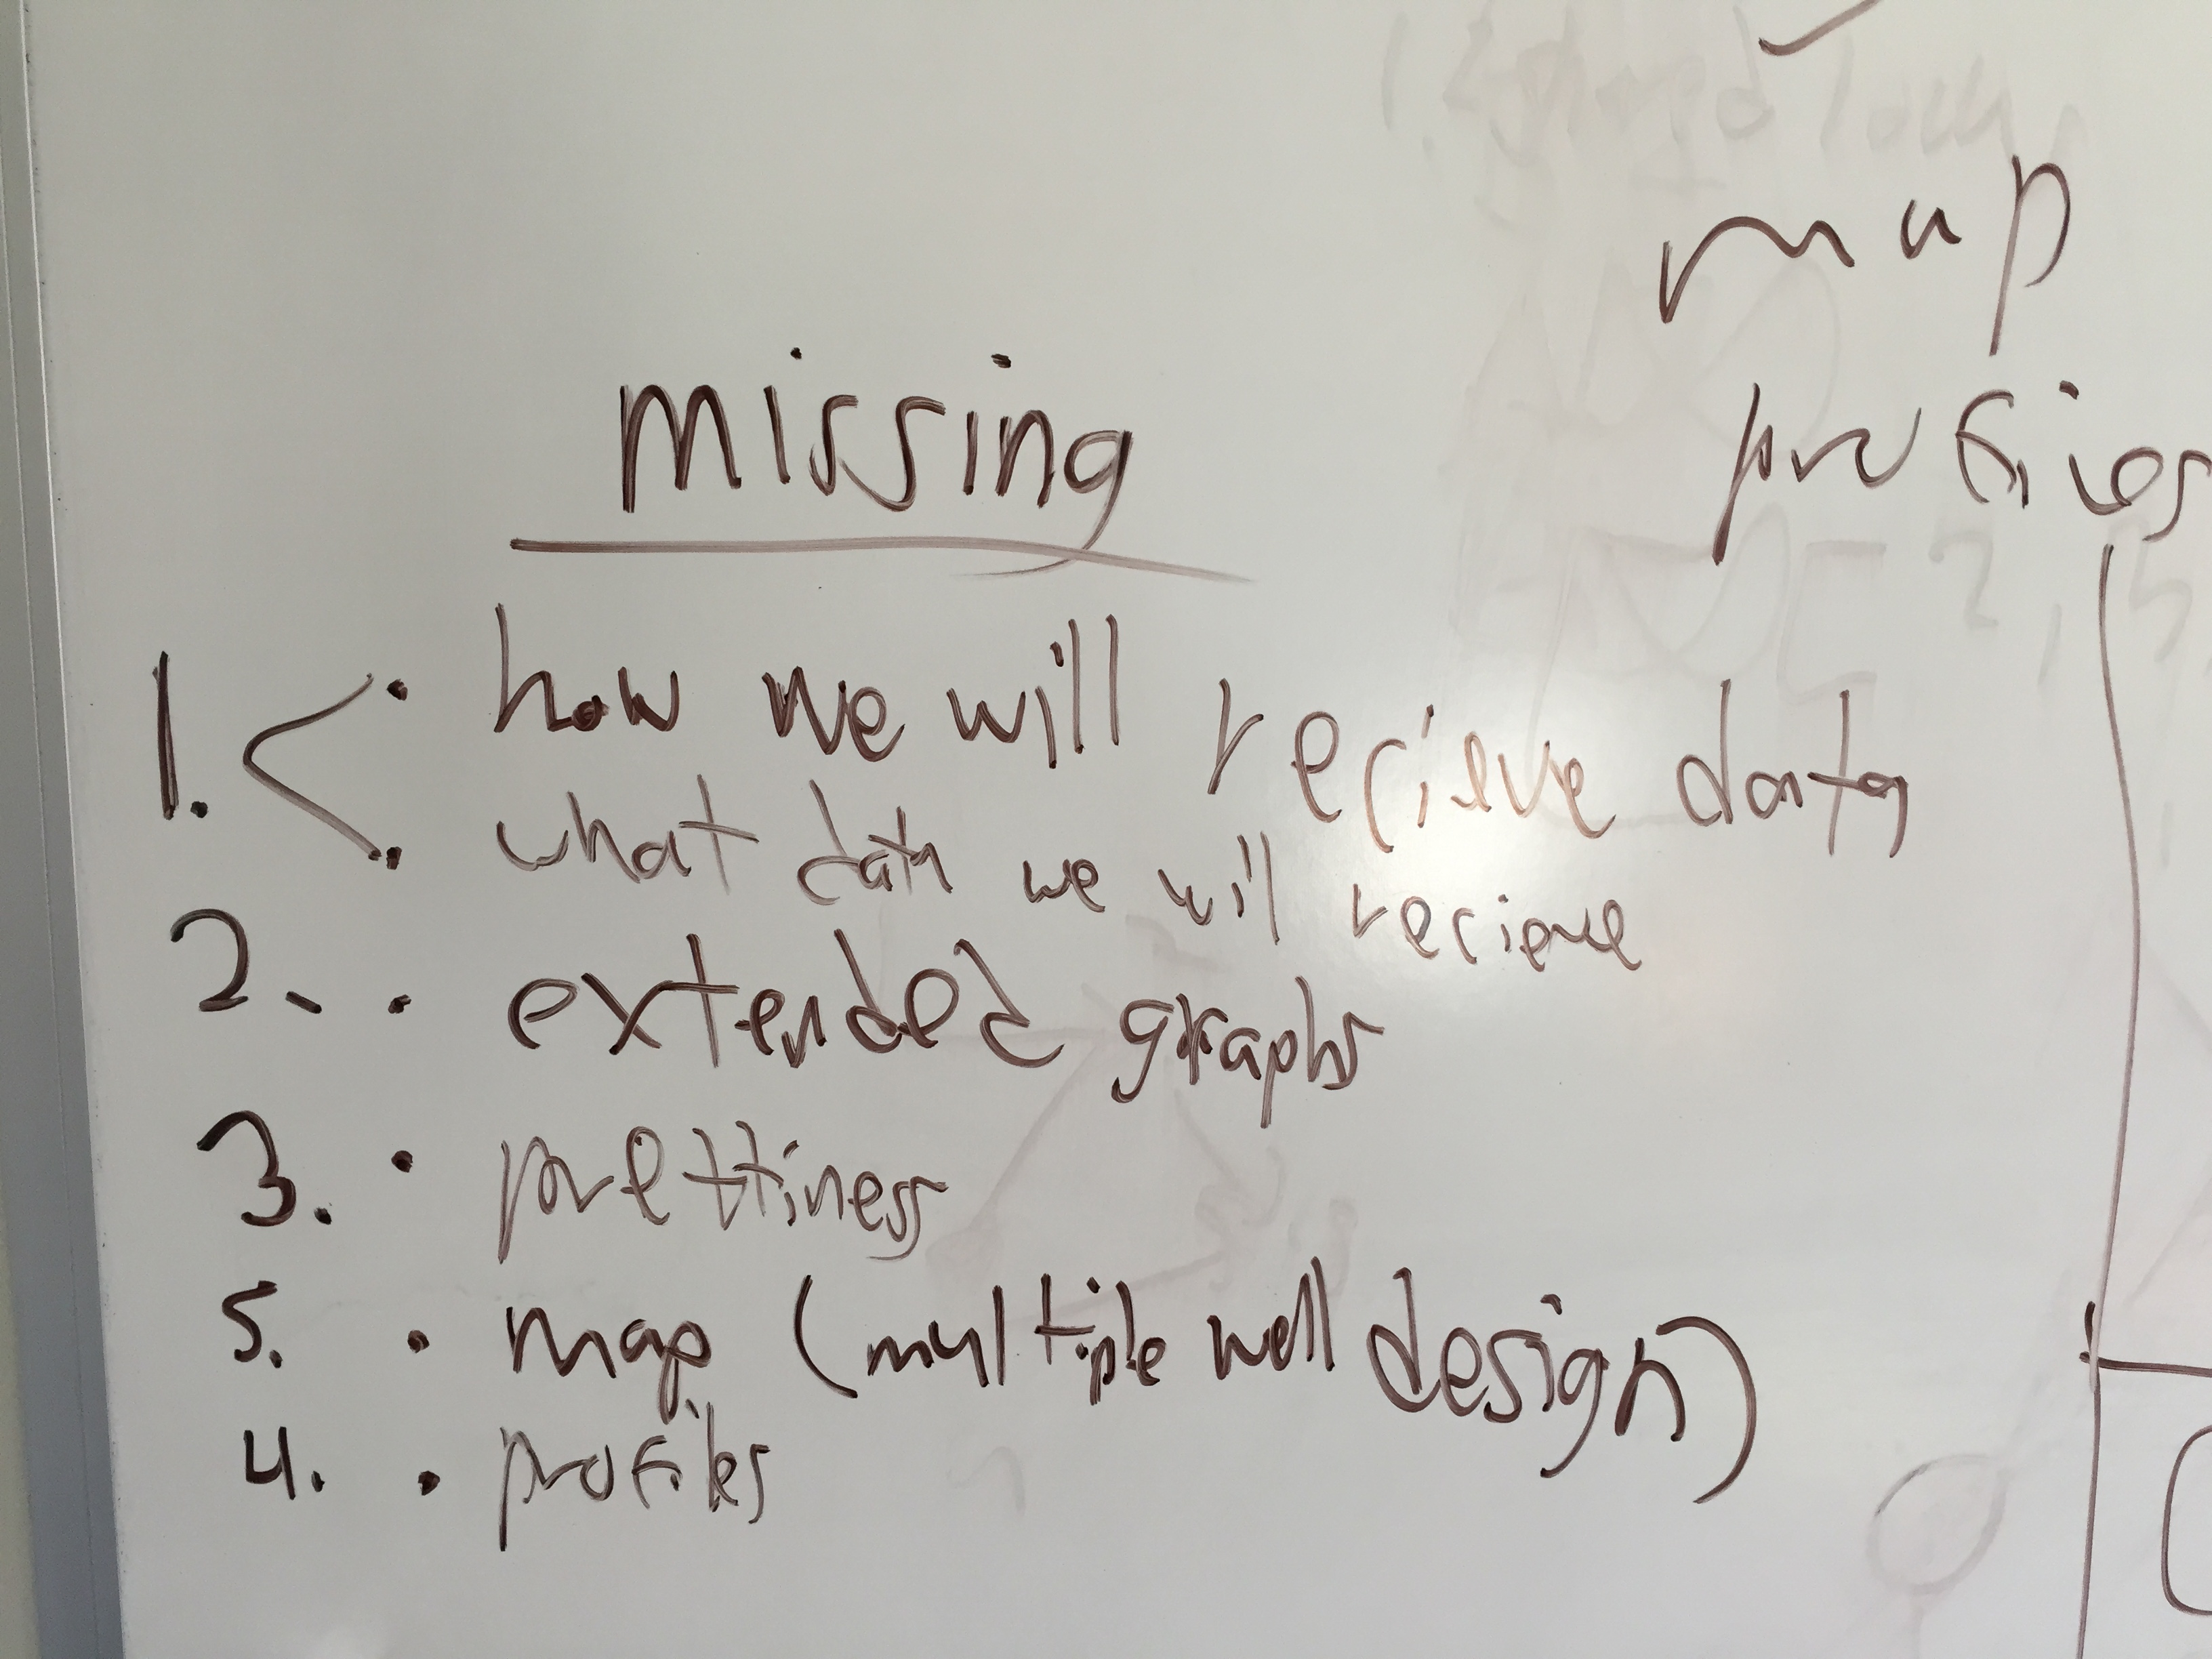 map
profiles
missing
1. < • how we will recieve data
• what data we will recieve
2. • extended graphs
3. • prettiness
5. • map (multiple well design)
4. • profiles